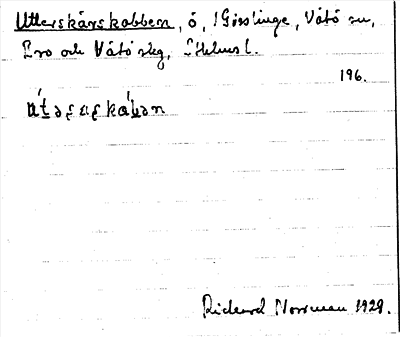 Utterskärskobben, ö, i Gisslinge, Vätö sn,
Bro och Vätö skg, Sthlms l.
196.
Rickard Norrman 1929.